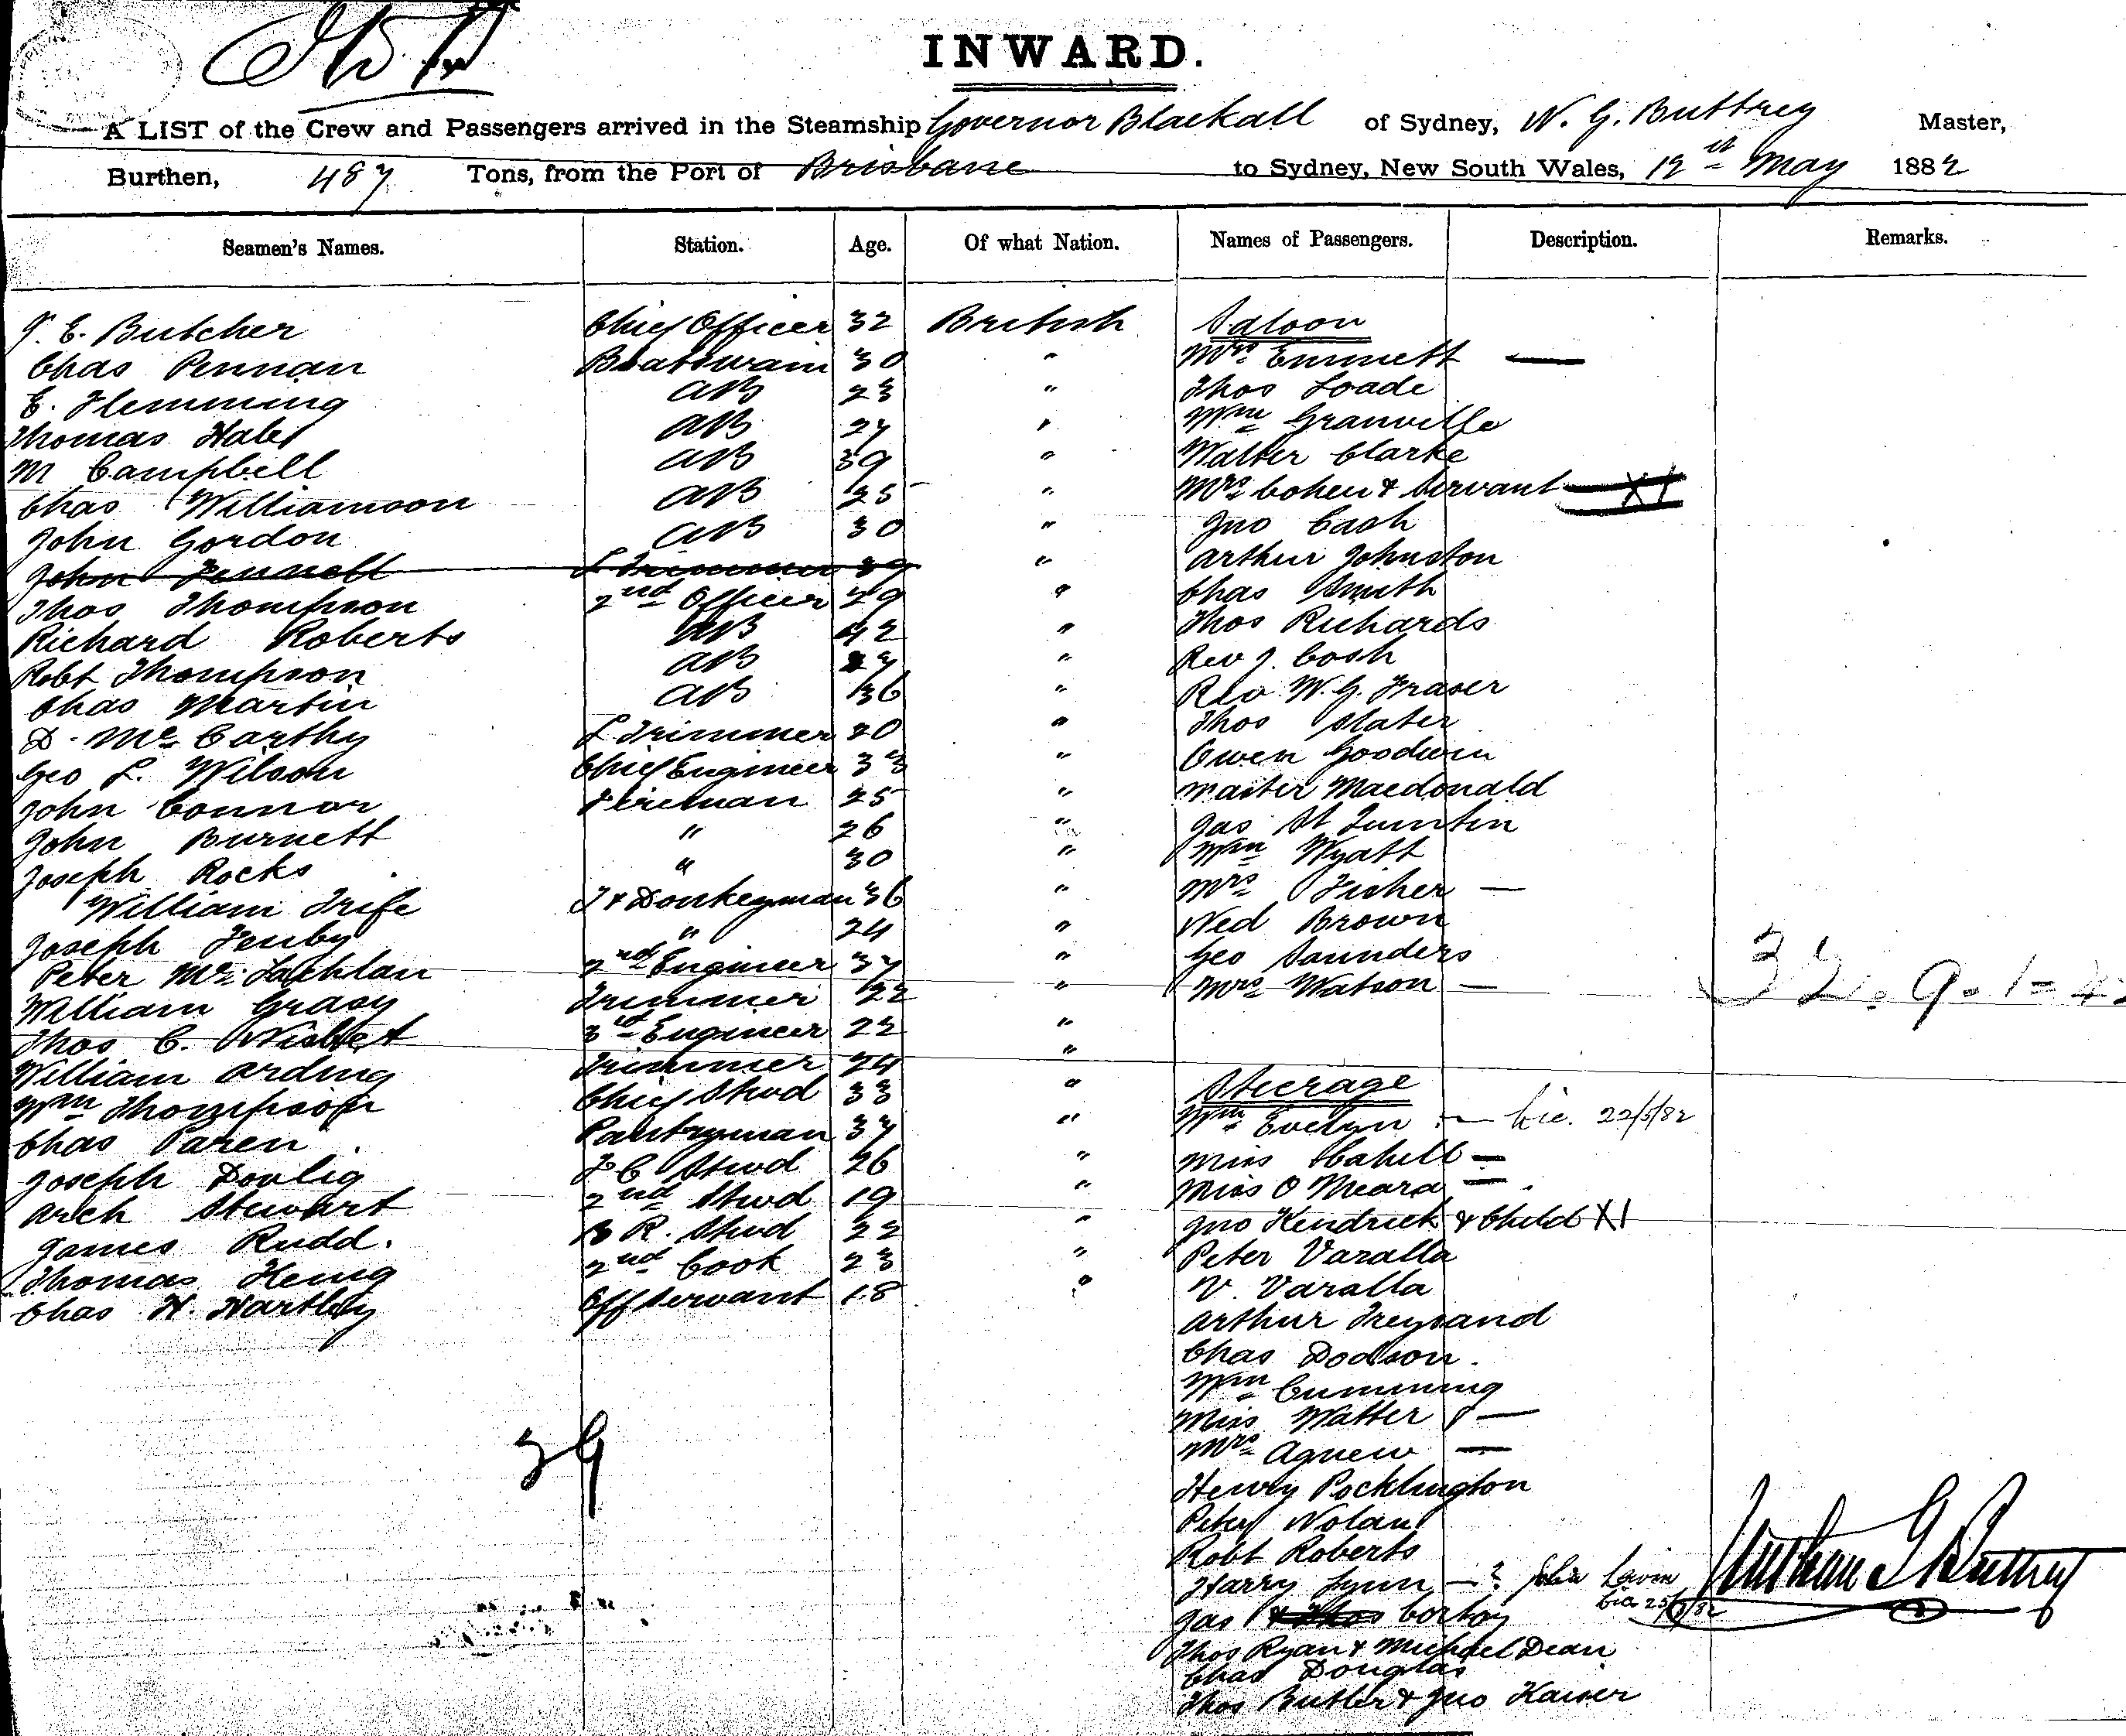 INWARD.
A LIST of the Crew and Passengers arrived in the Steamship Governor Blackall of Sydney, N. G. Buttrey Master,
Burthen, 487 Tons, from the Port of Brisbane to Sydney, New South Wales, 12th May 1882
Seamen's Names. Station. Age. Of what Nation. Names of Passengers. Description. Remarks.
E. Butcher Chief Officer 32 British Saloon
Chas Pennan Boatswain 30 " Mrs Emmett —
E. Flemming AB 23 " Thos Loade
Thomas Hales AB 27 " Wm Granville
M Campbell AB 39 " Walter Clarke
Chas Williamson AB 25 " Mrs Cohen & Servant — X1
John Gordon AB 30 " Jno Cash
John Fennell Trimmer 39 " Arthur Johnston
Thos Thompson 2nd Officer 29 " Chas Smith
Richard Roberts AB 42 " Thos Richards
Robt Thompson AB 27 " Rev J. Cosh
Chas Martin AB 36 " Rev W. G. Fraser
D. McCarthy Trimmer 20 " Thos Slater
Geo L. Wilson Chief Engineer 33 " Owen Goodwin
John Connor Fireman 25 " Master Macdonald
John Burnett " 26 " Jas St Quintin
Joseph Rocks " 30 " Wm Wyatt
William Trife F & Donkeyman 36 " Mrs Fisher —
Joseph Fenby " 24 " Ned Brown
Peter McLachlan 2nd Engineer 37 " Geo Saunders
William Grasy Trimmer 22 " Mrs Watson —
32. 9. 1 =
Thos C. Nisbet 3rd Engineer 22 "
William Arding Trimmer 24 "
Wm Thompson Chief Stwd 33 " Steerage
Chas Paren Pantryman 37 " Wm Evelyn — Lic. 22/5/82
Joseph Doulig F C Stwd 26 " Miss Cahill —
Arch Stewart 2nd Stwd 19 " Miss O Meara —
James Rudd. B R. Stwd 22 " Jno Kendrick & Child X1
Thomas Kenig 2nd Cook 23 " Peter Varalla
Chas H. Hartley Off Servant 18 " V. Varalla
Arthur Treysand
Chas Dodson.
Wm Cumming
Miss Watter —
Mrs Agnew —
39
Henry Pocklington
Peter Nolan
Robt Roberts
Harry Lynn — ? John Lavin
Jas & Thos Corboy Lic 25/5/82
Thos Ryan & Michael Dean
Chas Douglas
Thos Butler & Jno Kaiser